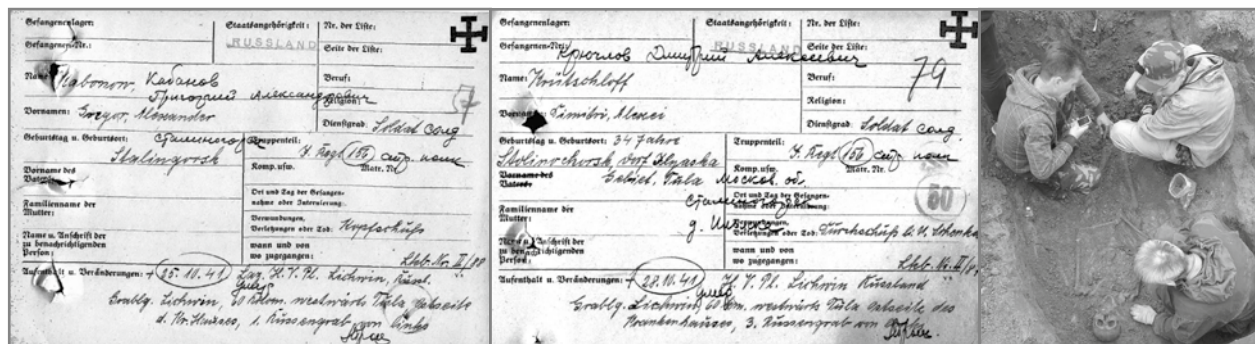 Gefangenenlager:
Staatsangehörigkeit:
RUSSLAND
Nr. der Liste:
Gefangenen-Nr.:
Seite der Liste:
Name: Kabonow, Кабанов
Григорий Александрович
Beruf:
Religion:
7
Vornamen: Gregor, Alexander
Dienstgrad: Soldat солд
Geburtstag u. Geburtsort:
Stalinogorsk
Truppenteil:
J. Regt 156 стр. полк
Komp. usw. Matr. Nr.
Vorname des
Vaters:
Ort und Tag der Gefangen-
nahme oder Internierung:
Familienname der
Mutter:
Verwundungen,
Verletzungen oder Tod: Kopfschuß
Name u. Anschrift der
zu benachrichtigenden
Person:
wann und von
wo zugegangen:
Lkb. Nr. II/88
Aufenthalt u. Veränderungen: + 25.10.41 Laz. H.V.Pl. Lichwin,
умер
Grablg. Lichwin, 60 Kilom. westwärts Tula Ostseite
d. Kr. Hauses, 1. Russengrab von links
Gefangenenlager:
Staatsangehörigkeit:
RUSSLAND
Nr. der Liste:
Gefangenen-Nr.:
Крючлов Дмитрий Алексеевич
Seite der Liste:
Name: Krütschloff
Beruf:
79
Religion:
Dimitri, Alexei
Dienstgrad: Soldat солд.
Geburtstag u. Geburtsort: 34 Jahre
Stolinochorsk, Dorf
Gebiet, Tula Москов. об.
Truppenteil:
J. Regt 156 стр. полк
Komp. usw. Matr. Nr.
Vorname des
Vaters:
Ort und Tag der Gefangen-
nahme oder Internierung:
50
Familienname der
Mutter:
Verwundungen,
Verletzungen oder Tod: Durchschuß
Name u. Anschrift der
zu benachrichtigenden
Person:
wann und von
wo zugegangen:
Aufenthalt u. Veränderungen: + 28.10.41 H.V.Pl. Lichwin Russland
умер
Grablg. Lichwin, 60 km. westwärts Tula Ostseite des
Krankenhauses, 3. Russengrab von